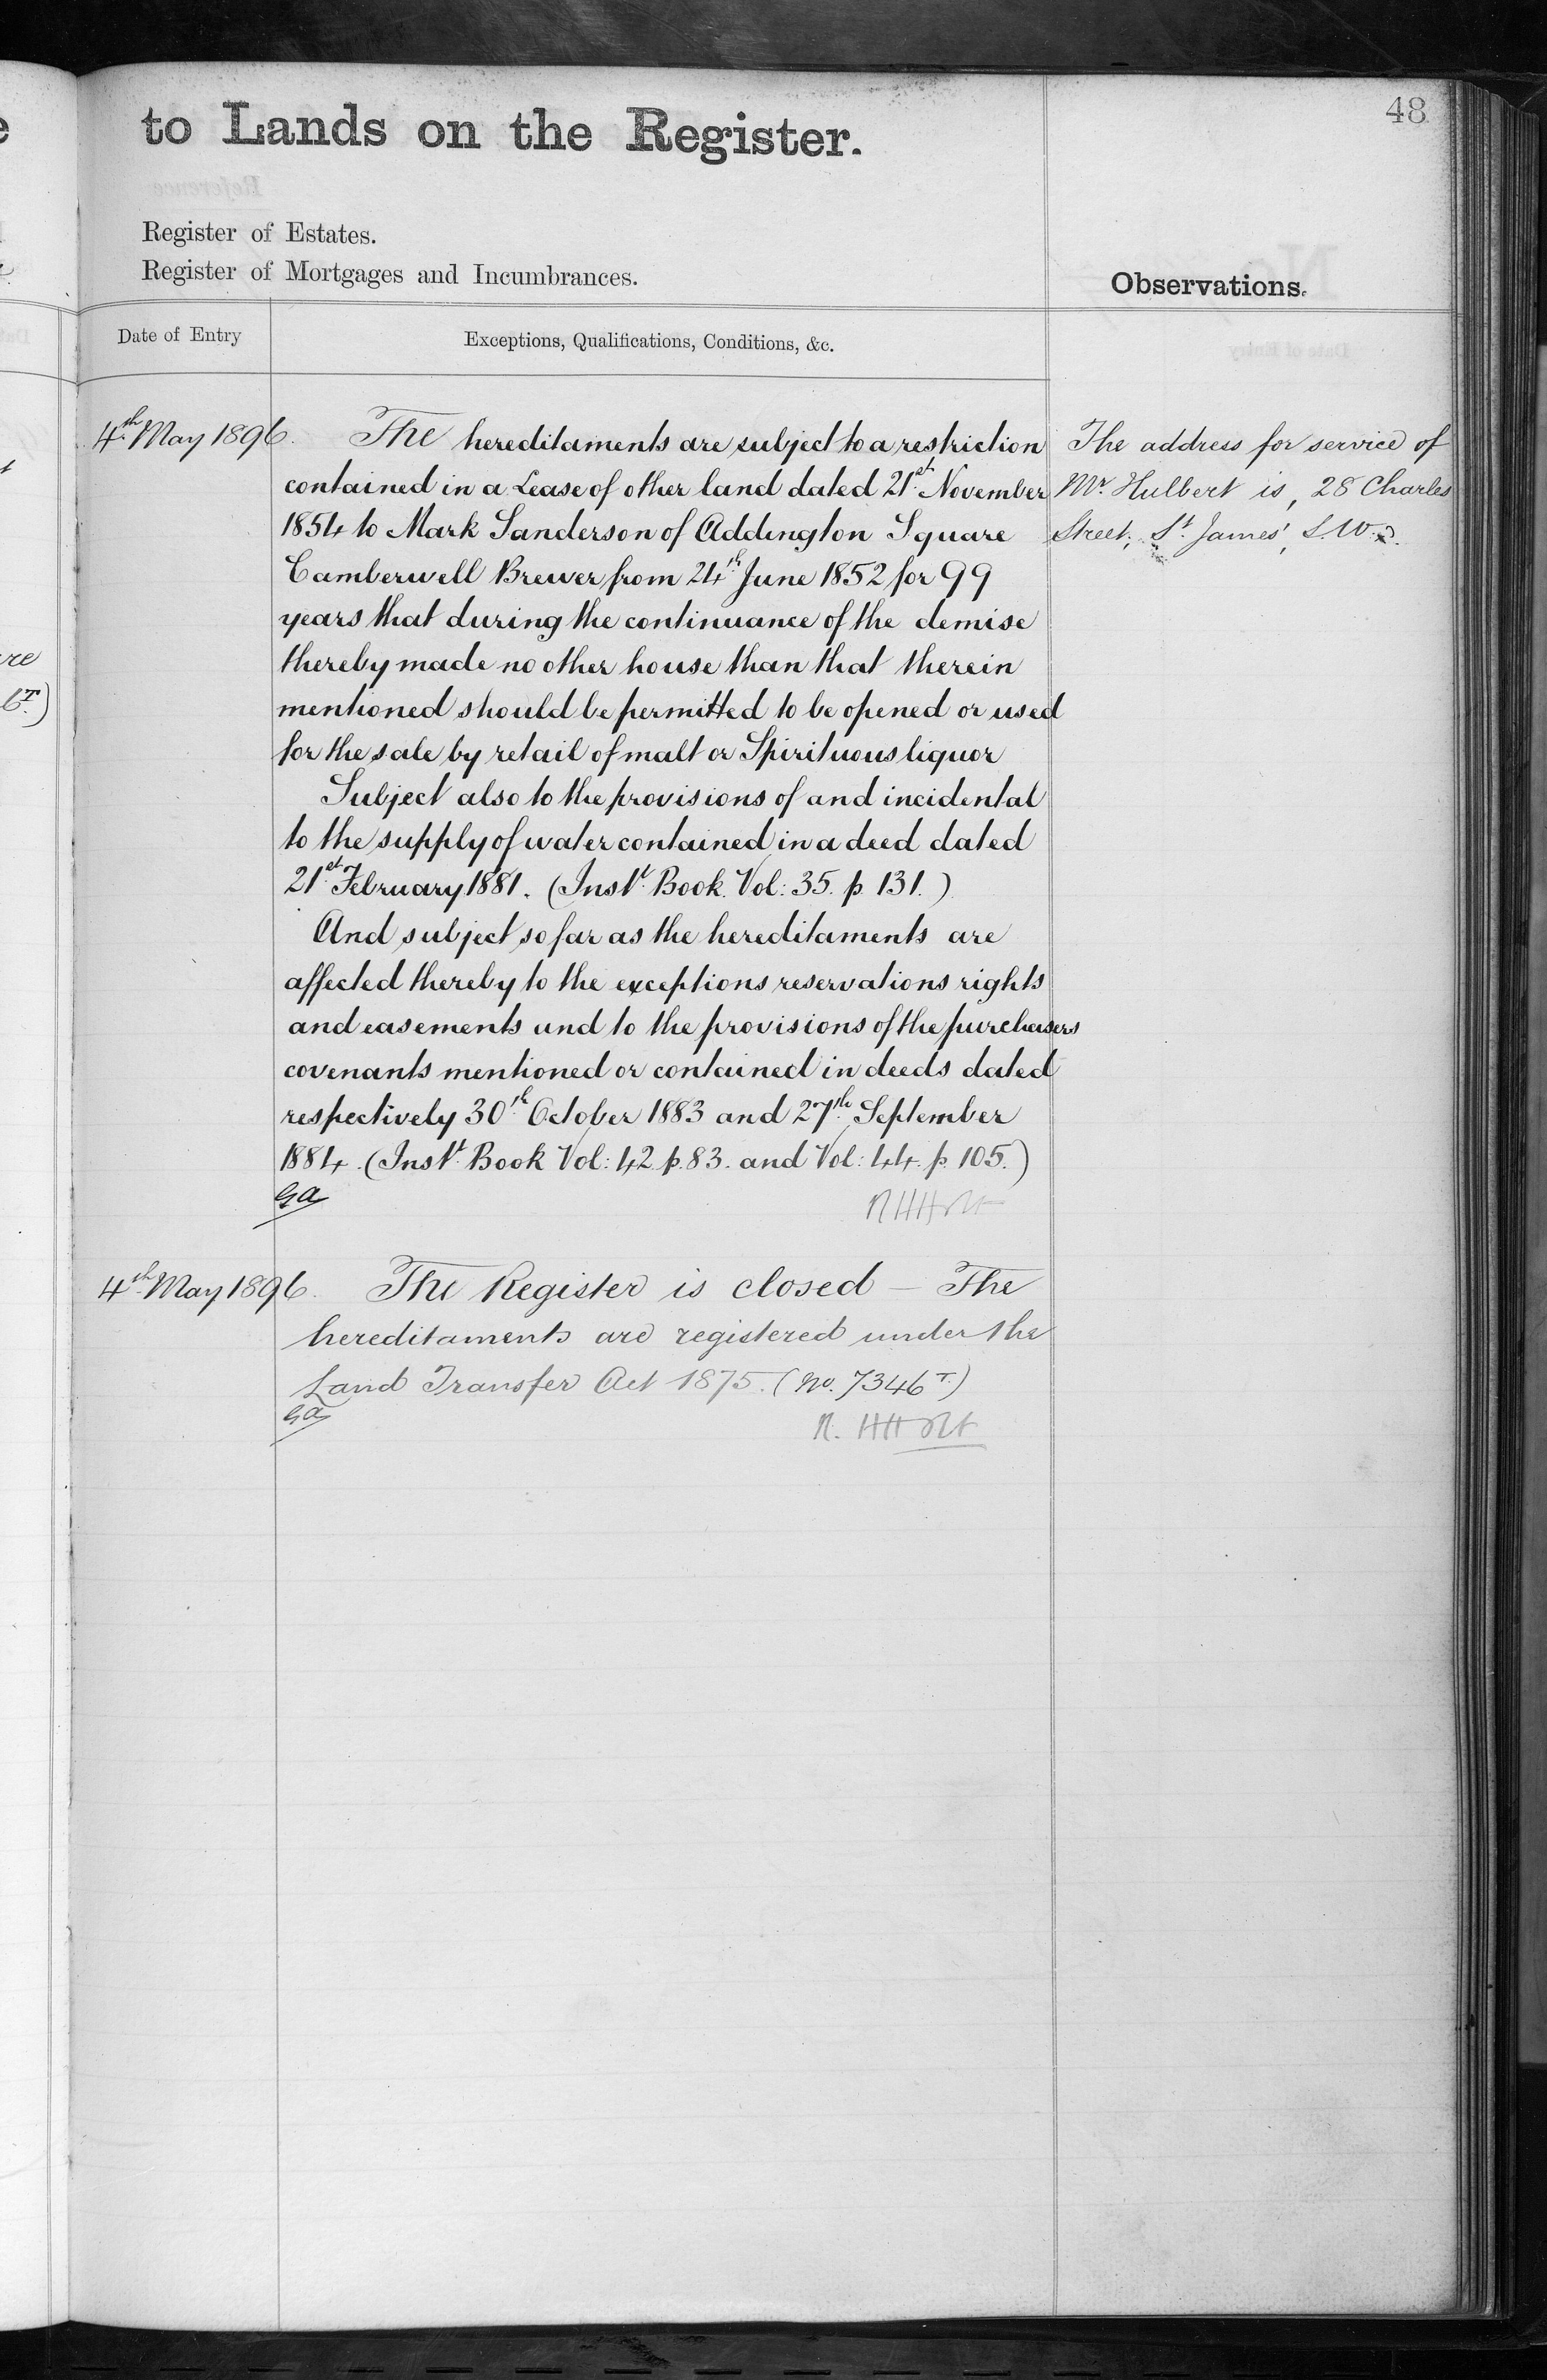 48
to Lands on the Register.
Register of Estates.
Register of Mortgages and Incumbrances.
Observations.
Date of Entry
Exceptions, Qualifications, Conditions, &c.
4th May 1896. The hereditaments are subject to a restriction
contained in a Lease of other land dated 21st November
1854 to Mark Sanderson of Addington Square
Camberwell Brewer from 24th June 1852 for 99
years that during the continuance of the demise
thereby made no other house than that therein
mentioned should be permitted to be opened or used
for the sale by retail of malt or Spirituous liquor
Subject also to the provisions of and incidental
to the supply of water contained in a deed dated
21st February 1881. (Inst. Book. Vol: 35. p. 131.)
And subject so far as the hereditaments are
affected thereby to the exceptions reservations rights
and easements and to the provisions of the purchasers
covenants mentioned or contained in deeds dated
respectively 30th October 1883 and 27th September
1884. (Inst. Book Vol: 42 p. 83. and Vol: 44. p. 105.)
GA
RHHolt
4th May 1896. The Register is closed — The
hereditaments are registered under the
Land Transfer Act 1875. (No. 7346 T.)
GA
R. HHolt
The address for service of
Mr. Hulbert is, 28 Charles
Street, St. James', S.W.